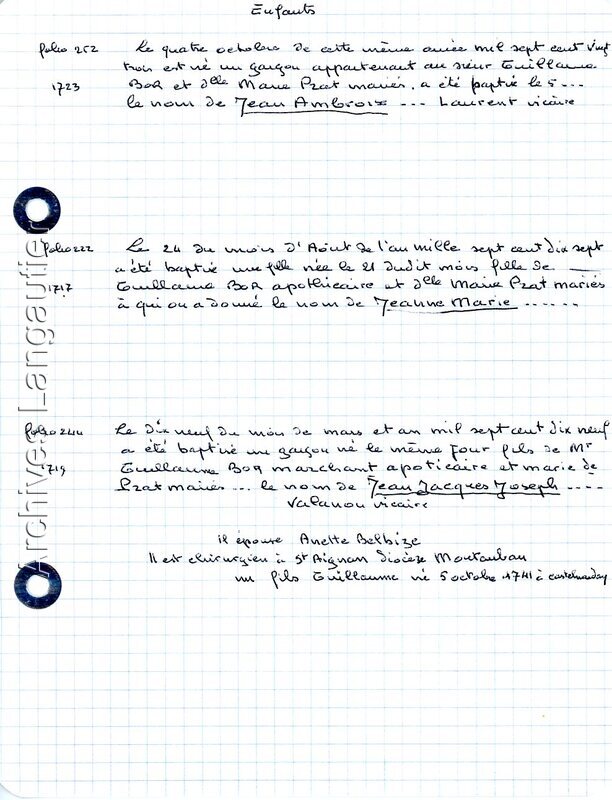 Enfants
folio 252 Le quatre octobre de cette même année mil sept cent vingt
trois est né un garçon appartenant au sieur Guillaume
1723 Bor et dlle Marie Prat mariés, a été baptisé le 5 ...
le nom de Jean Ambroise ... Laurent vicaire
folio 222 Le 24 du mois d'Août de l'an mille sept cent dix sept
a été baptisé une fille née le 21 dudit mois fille de
1717 Guillaume Bor apothicaire et dlle Marie Prat mariés
à qui on a donné le nom de Jeanne Marie ......
folio 244 Le dix neuf du mois de mars et an mil sept cent dix neuf
a été baptisé un garçon né le même jour fils de Mr
1719 Guillaume Bor marchant apoticaire et marie de
Prat mariés ... le nom de Jean Jacques Joseph ....
Valanou vicaire
il épouse Anette Belbize
Il est chirurgien à St Aignan diocèse Montauban
un fils Guillaume né 5 octobre 1741 à castelnaudary
Archives Langautier